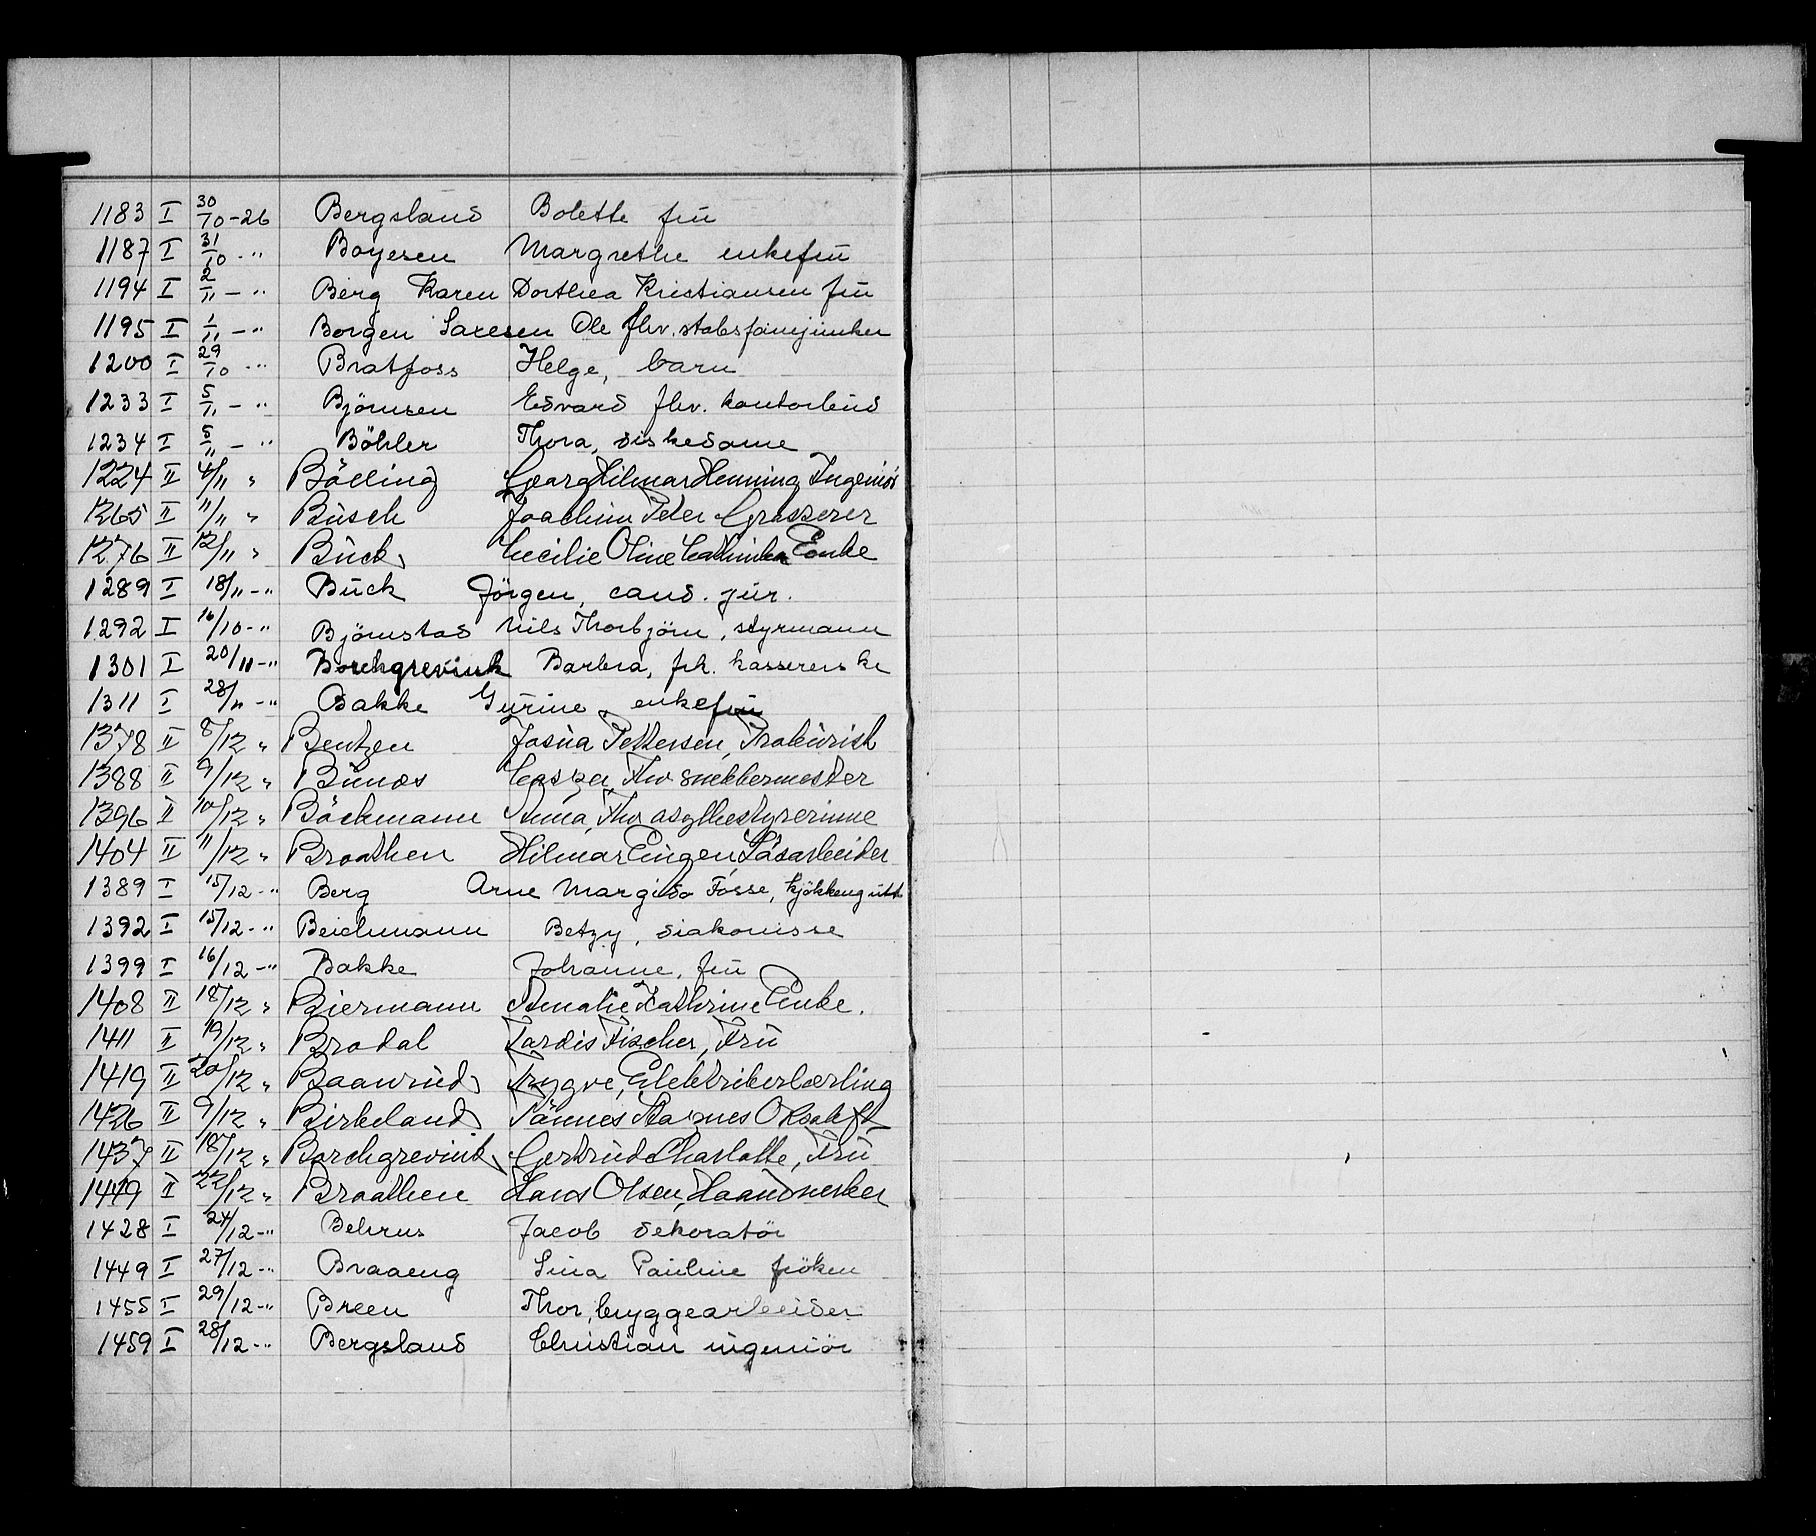 1183 I 30/10-26 Bergsland Bolette frú
1187 I 31/10 - " Boyesen Margrethe enkefrú
1194 I 2/11 - " Berg Karen Dorthea Kristiansen frú
1195 I 1/11 - " Borgen Saxesen Ole fhv. stabsfanejúnker
1200 I 29/10 " Bratfoss Helge, barn
1233 I 5/11 - " Björnsen Edvard fhv. kontorbúd
1234 I 5/11 - " Böhler Thora, diskedame
1224 II 4/11 " Bölling Georg Hilmar Henning Ingeniör
1265 II 11/11 " Búsch Joachim Peter Grosserer
1276 II 12/11 " Búck Cecilie Oline Cathinka Enke
1289 I 18/11 - " Búck Jörgen, cand. júr.
1292 I 16/10 - " Björnstad Nils Thorbjörn, styrmann
1301 I 20/11 - " Borchgrevink Barbra, frk. kassererske
1311 I 28/11 - " Bakke Gúrine, enkefrú
1378 II 8/12 " Bentzen Josúa Pettersen, Prokúrist
1388 II 9/12 " Búnæs Casper, Fhv snekkermester
1396 II 10/12 " Böckmann Anna, Fhv asylbestyrerinne
1404 II 11/12 " Braathen Hilmar Engen, Läsarbeider
1389 I 15/12 - " Berg Arne Margido Fosse, kjökkengútt
1392 I 15/12 - " Beichmann Betzy, diakonisse
1399 I 16/12 - " Bakke Johanne, frú
1408 II 18/12 " Biermann Amalie Kathrine Enke.
1411 II 19/12 " Brodal Tordis Fischer, Frú
1419 II 20/12 " Baanrúd Trygve, Elektrikerlærling
1426 II 9/12 " Birkeland Tönnes Magnes
1437 II 18/12 " Borchgrevink Gertrúd Charlotte, Frú
1449 II 22/12 " Braathen Hans Olsen, Haandverker
1428 I 24/12 - " Behrns Jacob dekoratör
1449 I 27/12 - " Braaeng Sina Paúline fröken
1455 I 29/12 - " Breen Thor, bryggearbeider
1459 I 28/12 - " Bergsland Christian ingeniör